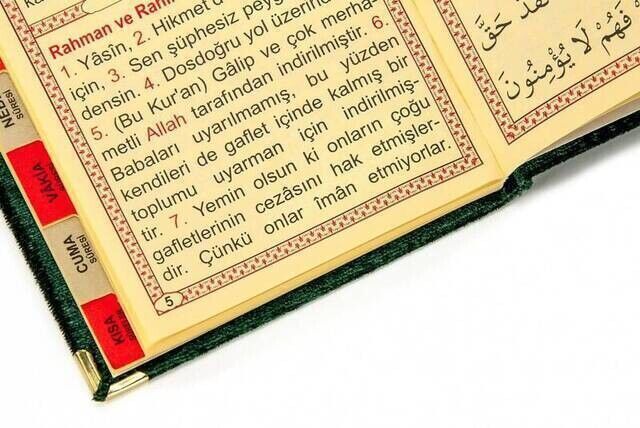 Rahman ve Rahî
1. Yâsîn, 2. Hikmet d
için, 3. Sen şüphesiz peyg
densin. 4. Dosdoğru yol üzerind
5. (Bu Kur'an) Gâlip ve çok merha-
metli Allah tarafından indirilmiştir. 6.
Babaları uyarılmamış, bu yüzden
kendileri de gaflet içinde kalmış bir
toplumu uyarman için indirilmiş-
tir. 7. Yemin olsun ki onların çoğu
gafletlerinin cezâsını hak etmişler-
dir. Çünkü onlar îmân etmiyorlar.
5
حَقَّ
فَهُمْ لَا يُؤْمِنُونَ
SÛRESİ
VÂKIA
CUMA
SÛRESİ
KISA